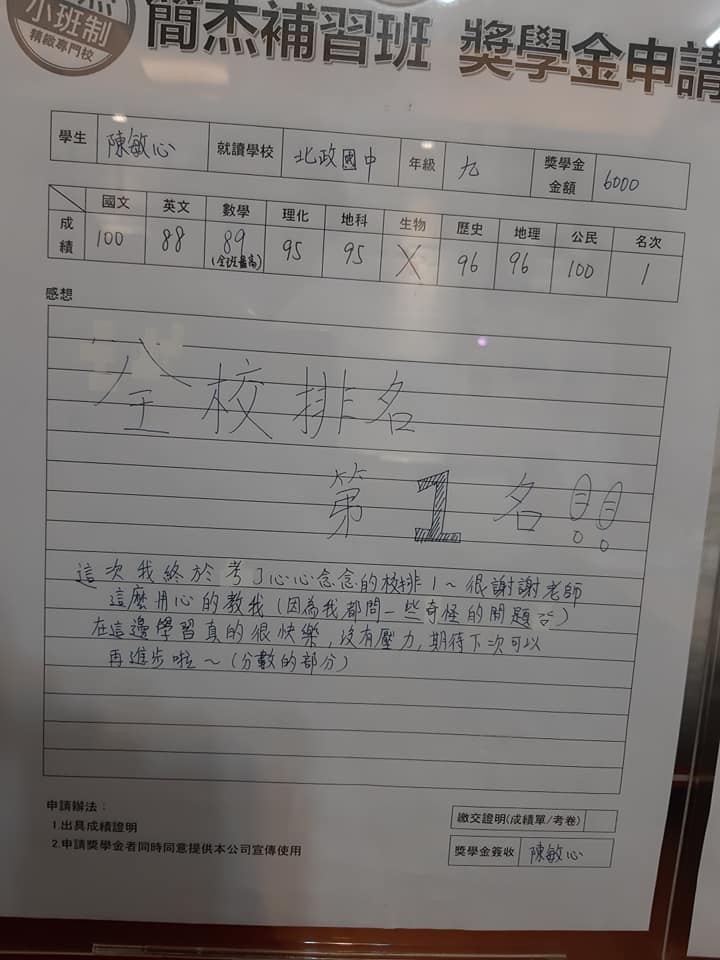 小班制
精緻專門校
簡杰補習班 獎學金申請
學生 陳敏心 就讀學校 北政國中 年級 九 獎學金金額 6000
國文 英文 數學 理化 地科 生物 歷史 地理 公民 名次
成績 100 88 89 95 95 X 96 96 100 1
(全班最高)
感想
全校排名
第1名!!
這次我終於考了心心念念的校排1~很謝謝老師
這麼用心的教我(因為我都問一些奇怪的問題 )
在這邊學習真的很快樂,沒有壓力,期待下次可以
再進步啦~(分數的部分)
申請辦法:
1.出具成績證明
2.申請獎學金者同時同意提供本公司宣傳使用
繳交證明(成績單/考卷)
獎學金簽收 陳敏心